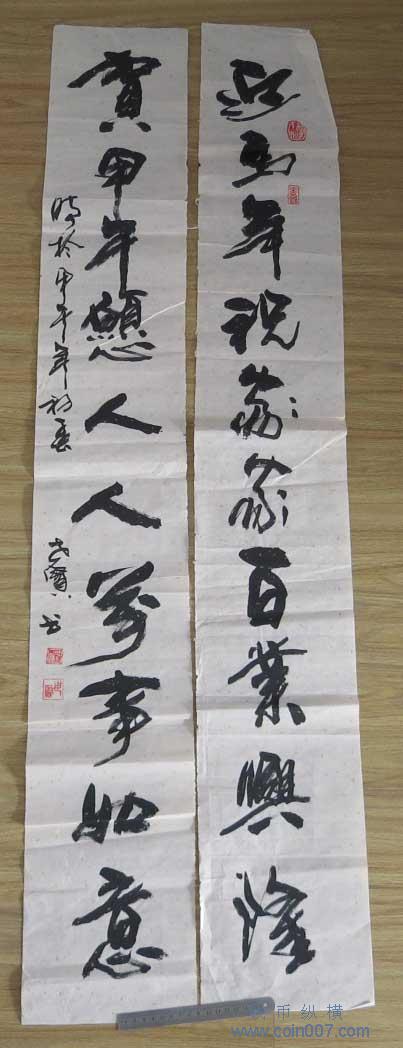 迎馬年祝家家百業興隆
賀甲午願人人萬事如意
時於甲午年初春
币纵横
www.coin007.com